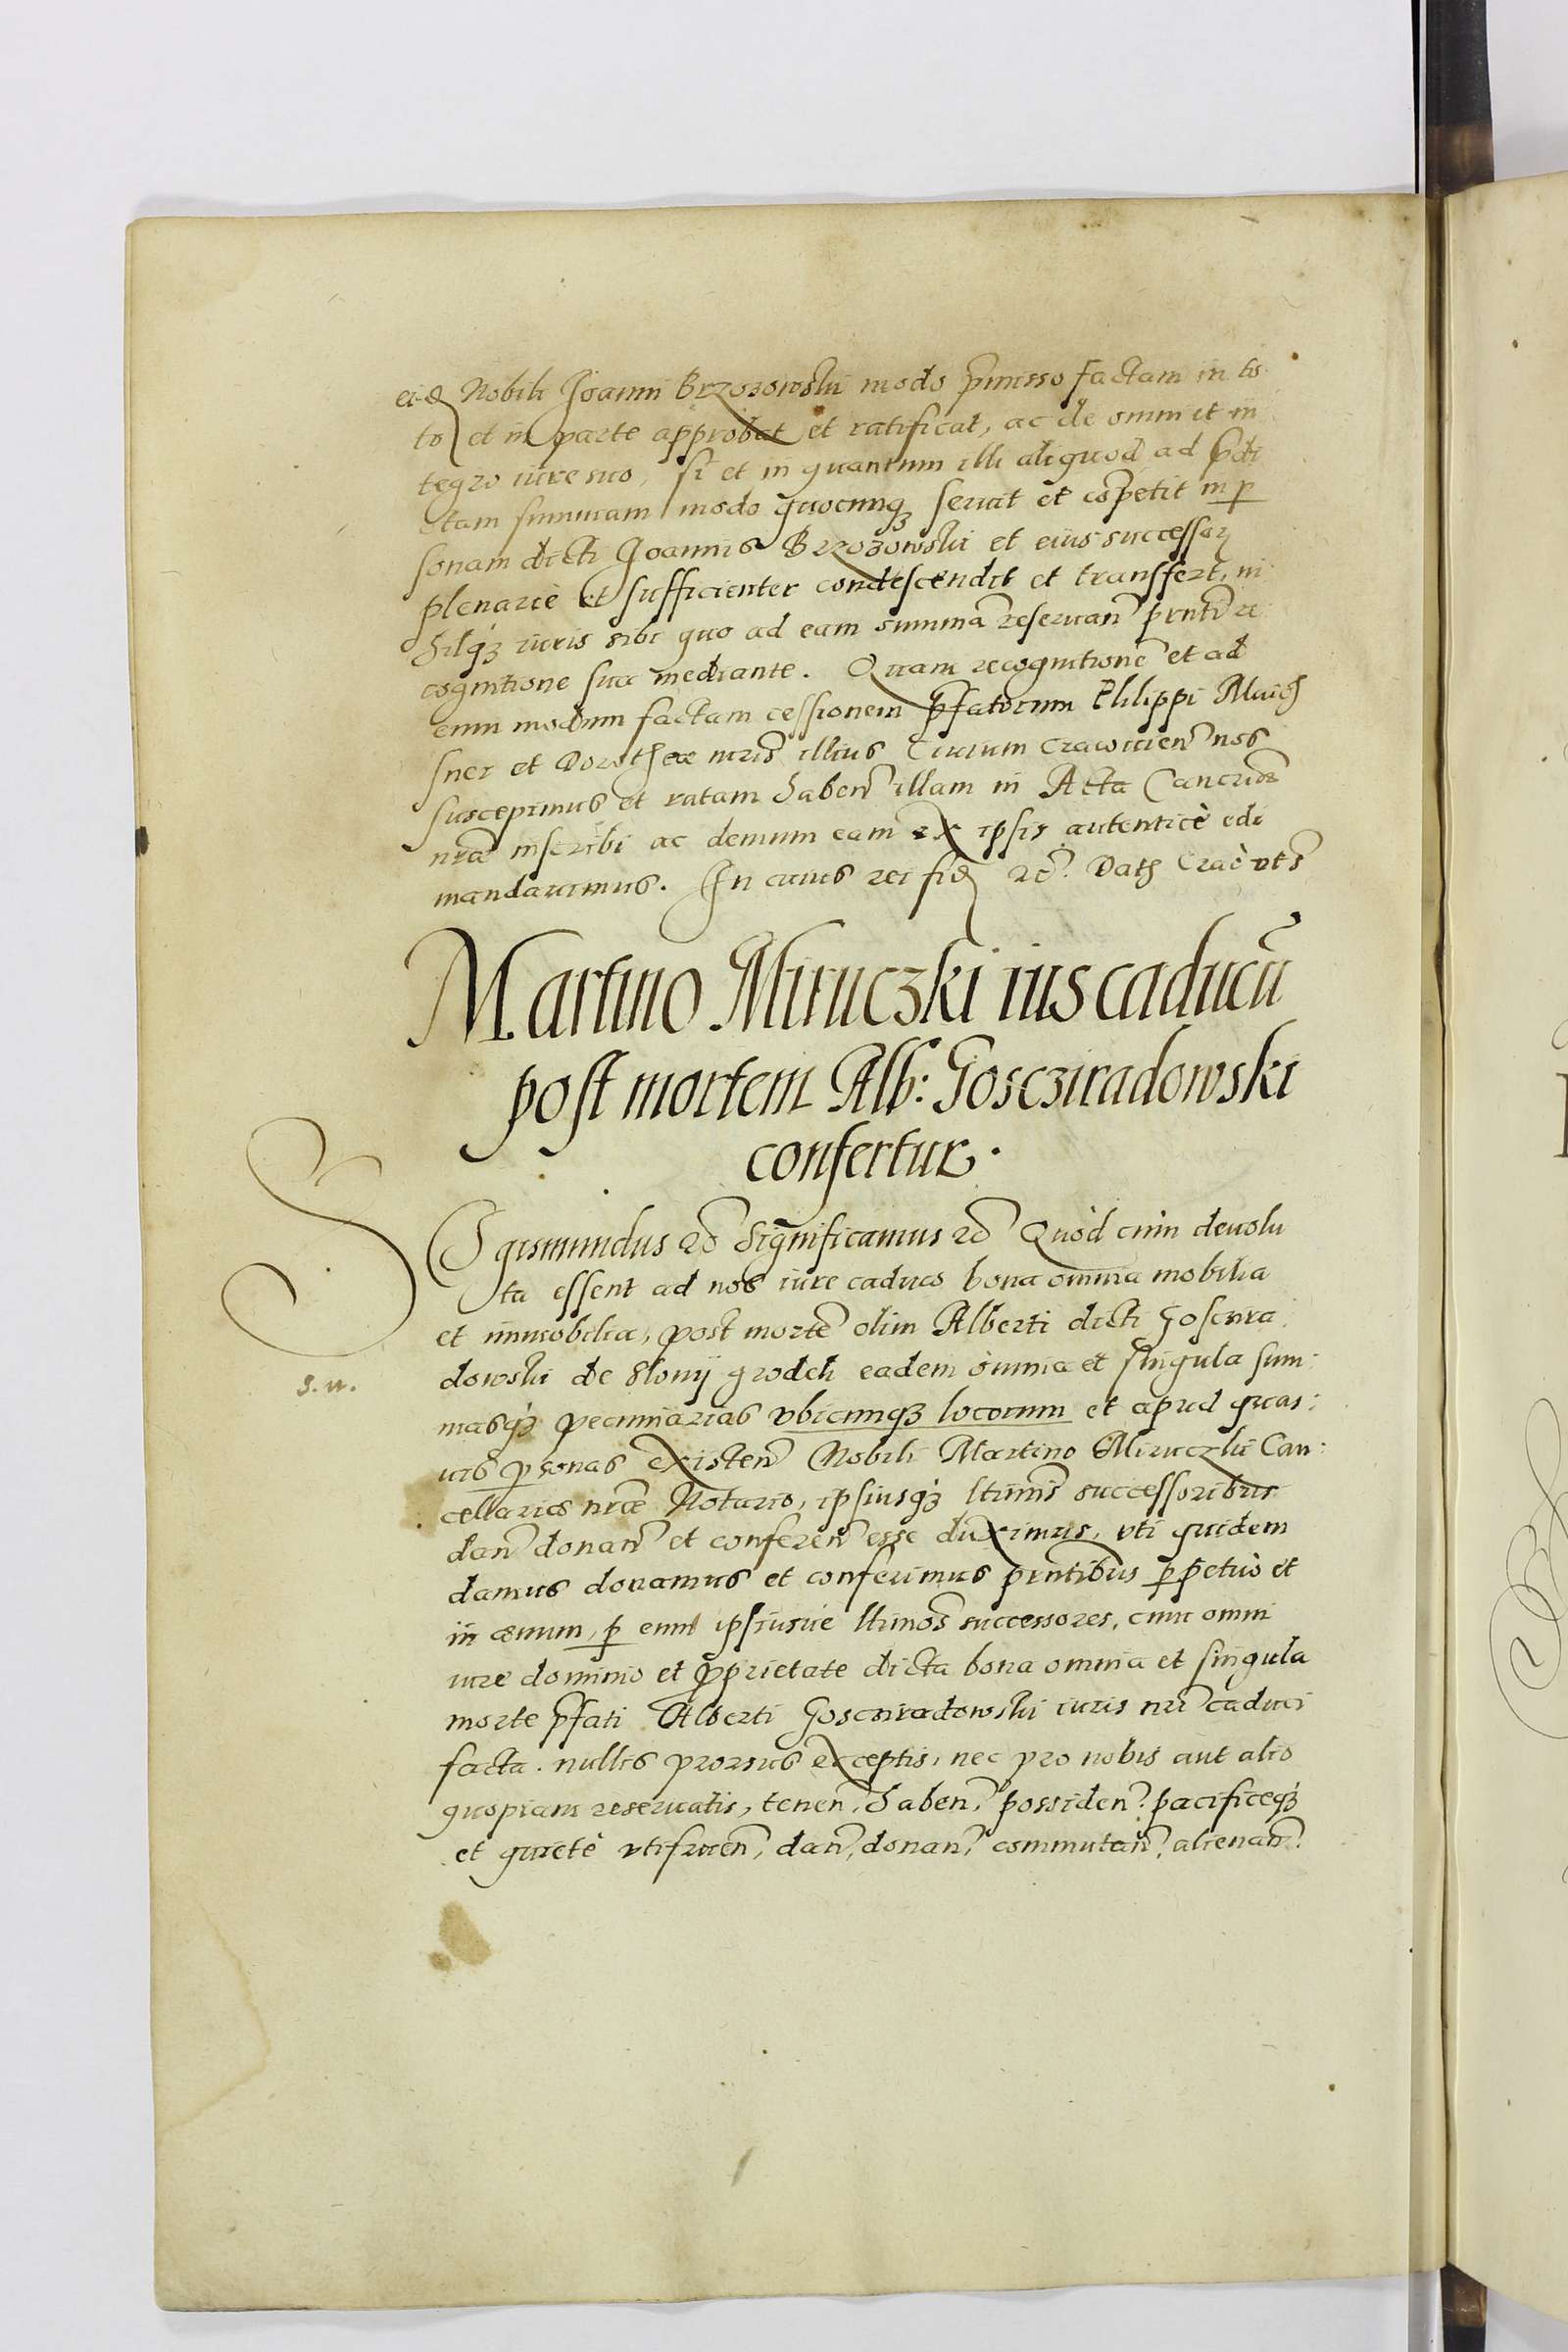 eid Nobili Joanni Brzozowski modo p̄misso factam in to
to et in parte approbat et ratificat, ac de omni et in
tegro iure suo, si et in quantum illi aliquod ad p̄di
ctam summam modo quocunqꝫ seruat et cōpetit in ꝑ
sonam dicti Joannis Brzozowski et eius successorꝝ
plenariè et sufficienter condescendit et transfert, ni
hilqꝫ iuris sibi quo ad eam summā reseruan̄ pn̄ti re
cognitione sua mediante. Quam recognitionē et ad
eum modum factam cessionem p̄fatorum Philippi Maich
sner et Dorotheæ uxōris illius Ciuium Cracouien̄ nos
suscepimus et ratam haben̄ illam in Acta Cancriæ
nr̄æ inscribi ac demum eam ex ipsis autenticè edi
mandauimus. In cuius rei fid ꝛc̄. Datꝫ Crac̄ vt s̄
Martino Miruczki ius caducū
post mortem Alb: Goscziradowski
confertur.
Sigismundus ꝛc̄ Significamus ꝛc̄ Quòd cùm deuolu
ta essent ad nos iure caduco bona omnia mobilia
et immobilia, post mortē olim Alberti dicti Gosczira
dowski de Slonÿ grodek eadem omnia et singula sum:
masqꝫ pecuniarias vbicunqꝫ locorum et apud quas:
uis ꝑsonas existen̄ Nobili Martino Miruczki Can:
cellariæ nr̄æ Notario, ipsiusqꝫ ltimis̄ successoribus
dan̄ donan̄ et conferen̄ esse duximus, vti quidem
damus donamus et conferimus pn̄tibus ꝑpetuò et
in æuum, ꝑ eum ipsiusue ltimos̄ successores, cum omni
iure dominio et ꝓprietate dicta bona omnia et singula
morte p̄fati Alberti Goscziradowski iuris nr̄i caduci
facta. nullis prorsus exceptis, nec pro nobis aut alio
quopiam reseruatis, tenen̄, haben̄, possiden̄, pacificeqꝫ
et quietè vtifruen̄, dan̄, donan̄, commutan̄, alienan̄.
s. n.